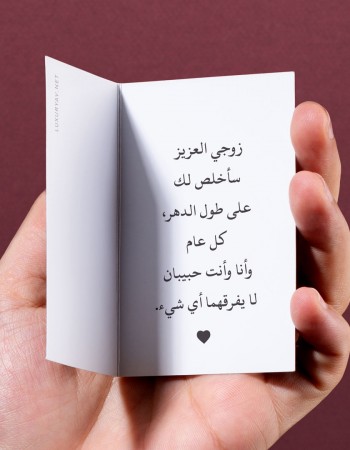 LUXURYAY.NET
زوجي العزيز
سأخلص لك
على طول الدهر،
كل عام
وأنا وأنت حبيبان
لا يفرقهما أي شيء.